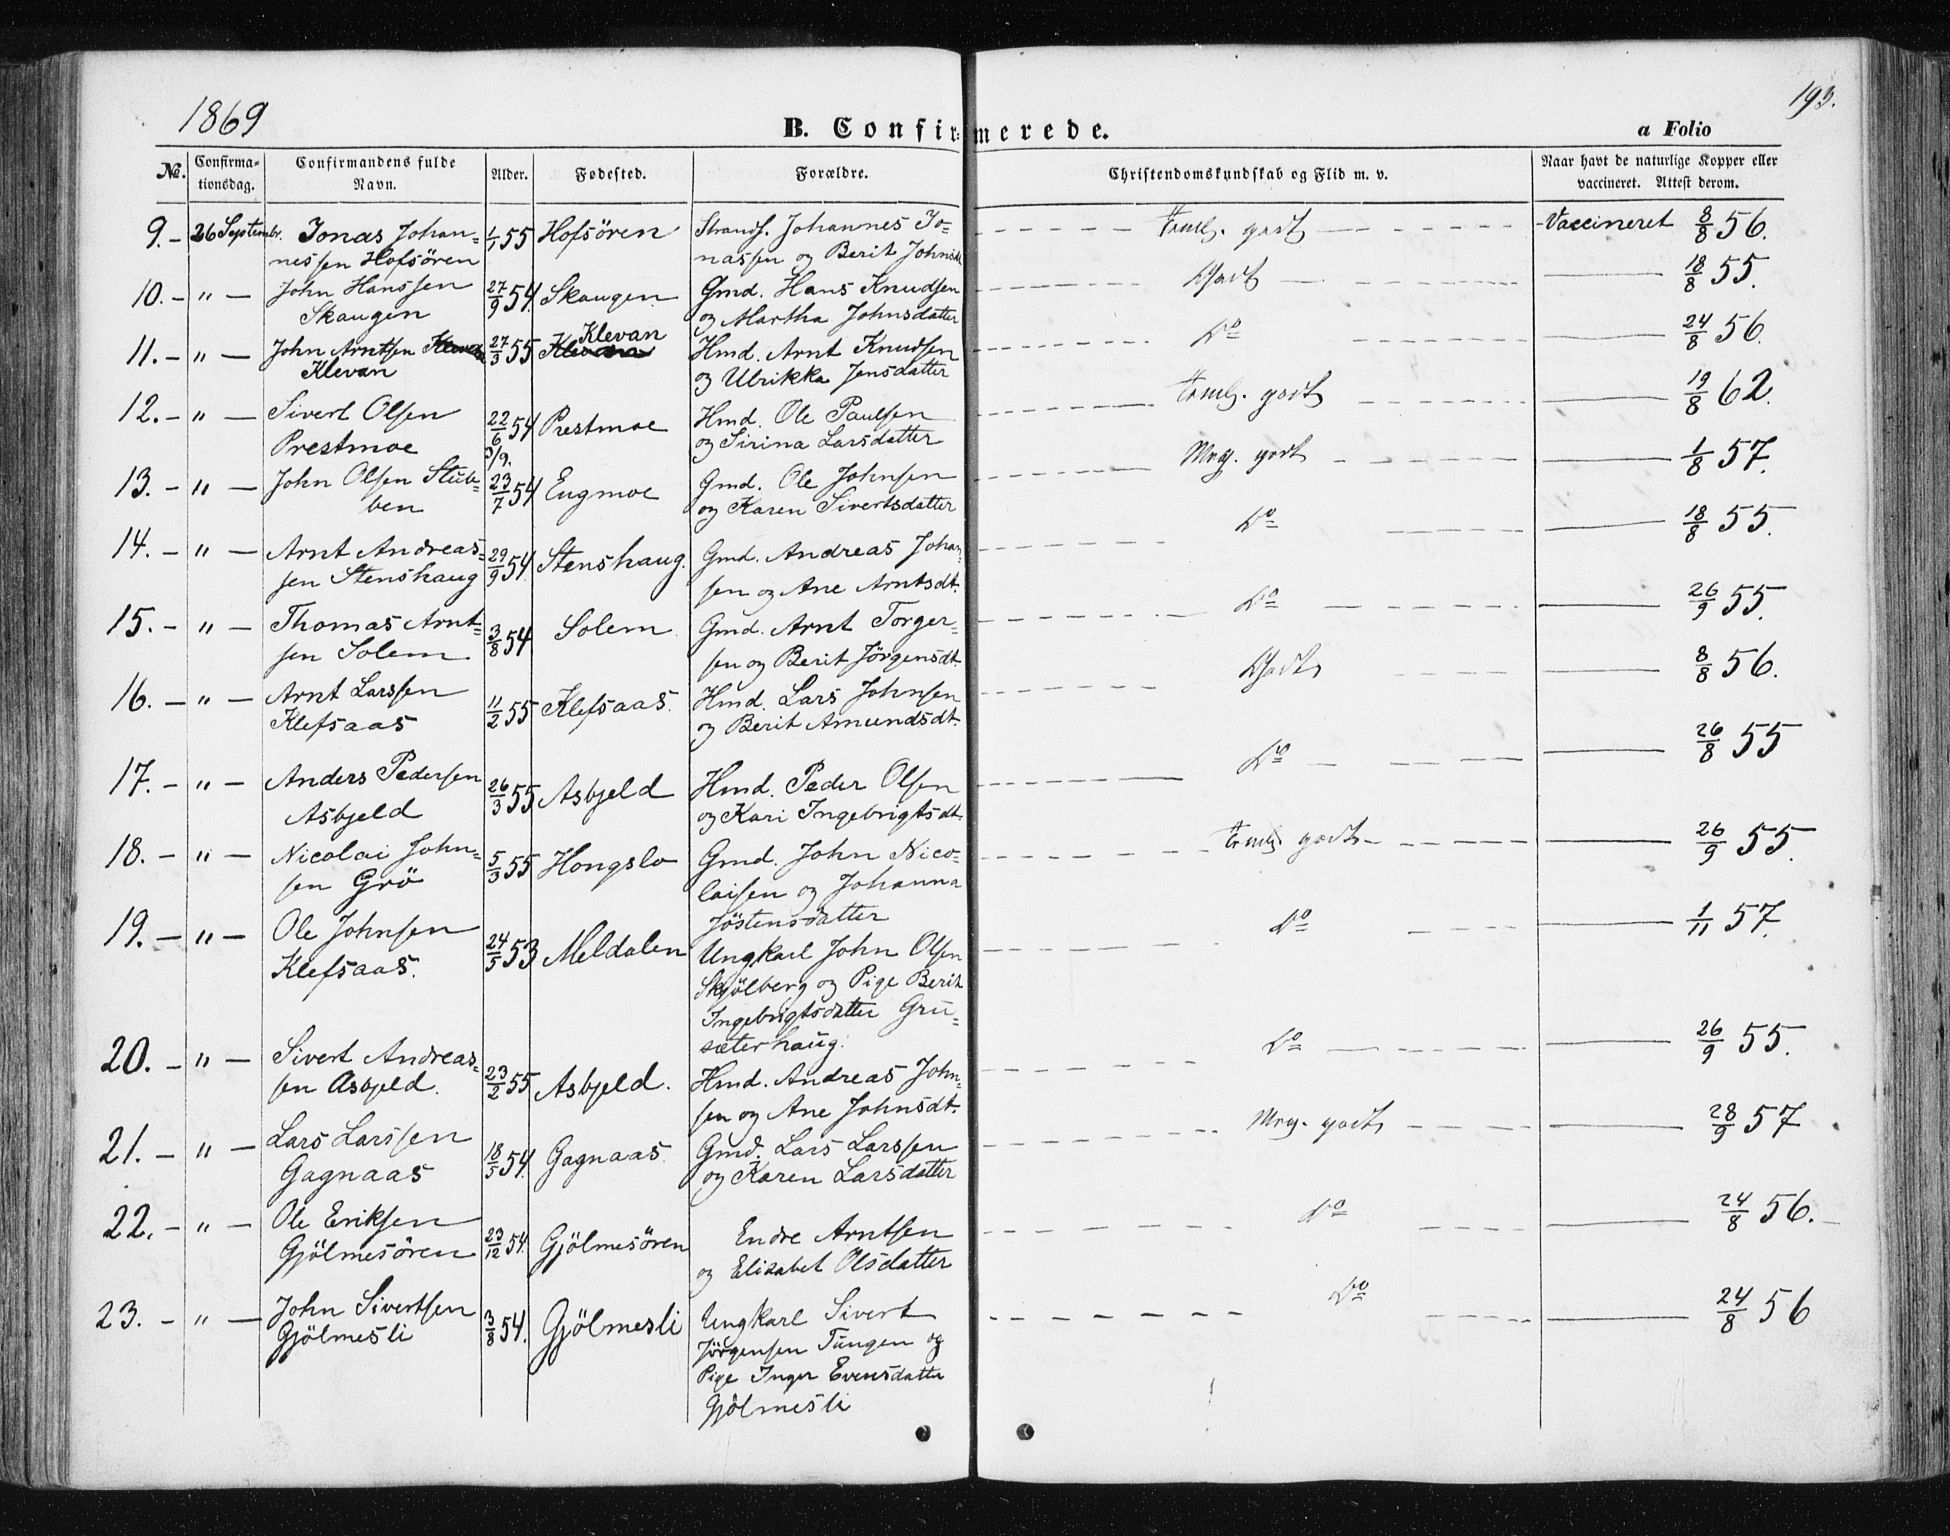 1869
193.
B. Confirmerede.
a Folio
No. Confirmationsdag. Confirmandens fulde Navn. Alder. Fødested. Forældre. Christendomskundskab og Flid m. v. Naar havt de naturlige Kopper eller vaccineret. Attest derom.
9. - 26 Septembr. Jonas Johan= 1/1 55 Hofsören Strands. Johannes Jo= Teml. godt - Vaccineret 8/8 56.
nessen Hofsören nassen og Berit Johnsdt
10. - " - John Hanssen 27/9 54. Skaugen Gmd. Hans Knudsen Godt 18/8 55.
Skaugen og Martha Johnsdatter
11. - " - John Arntsen 27/3 55 Klevan Hmd. Arnt Knudsen Do 24/8 56.
Klevan og Ulrikka Jensdatter
12. - " - Sivert Olsen 22/6 54 Prestmoe Hmd. Ole Paulsen Teml. godt 19/8 62.
Prestmoe og Sirina Larsdatter
13. - " - John Olsen Stub= 23/7 54 Engmoe Gmd. Ole Johnsen Meg. godt 1/8 57.
ben og Karen Sivertsdatter
14. - " - Arnt Andreas= 29/9 54. Stenshaug. Gmd. Andreas Johan= Do 18/8 55.
sen Stenshaug sen og Ane Arntsdt.
15. - " - Thomas Arnt= 3/8 54 Solem Gmd. Arnt Torger= Do 26/9 55.
sen Solem sen og Berit Jörgensdt.
16. - " - Arnt Larssen 11/2 55 Klefsaas. Hmd. Lars Johnsen Godt 8/8 56.
Klefsaas og Berit Amundsdt.
17. - " - Anders Pedersen 26/3 55 Asbjeld Hmd. Peder Olsen Do 26/8 55
Asbjeld og Kari Ingebrigtsdt.
18. - " - Nicolai John= 5/3 55 Hongslo Gmd. John Nico= Teml. godt 26/9 55.
sen Grö laisen og Johanna
Jöstensdatter
19. - " - Ole Johnsen 24/5 53 Meldalen Ungkarl John Olsen Do 1/11 57.
Klefsaas. Skjölberg og Pige Berit
Ingebrigtsdatter Gru=
sæterhaug.
20. - " - Sivert Andreas= 23/2 55 Asbjeld. Hmd. Andreas John= Do 26/9 55.
sen Asbjeld. sen og Ane Johnsdt.
21. - " - Lars Larssen 18/5 54. Gagnaas Gmd. Lars Larssen Meg. godt 28/9 57
Gagnaas og Karen Larsdatter
22. - " - Ole Eriksen 23/12 54. Gjölmesören Endre Arntsen Do 24/8 56.
Gjölmesören og Elisabet Olsdatter
23. - " - John Sivertsen 3/8 54. Gjölmesli Ungkarl Sivert Do 24/8 56
Gjölmesli Jörgensen Tungen og
Pige Inger Evensdatter
Gjölmesli